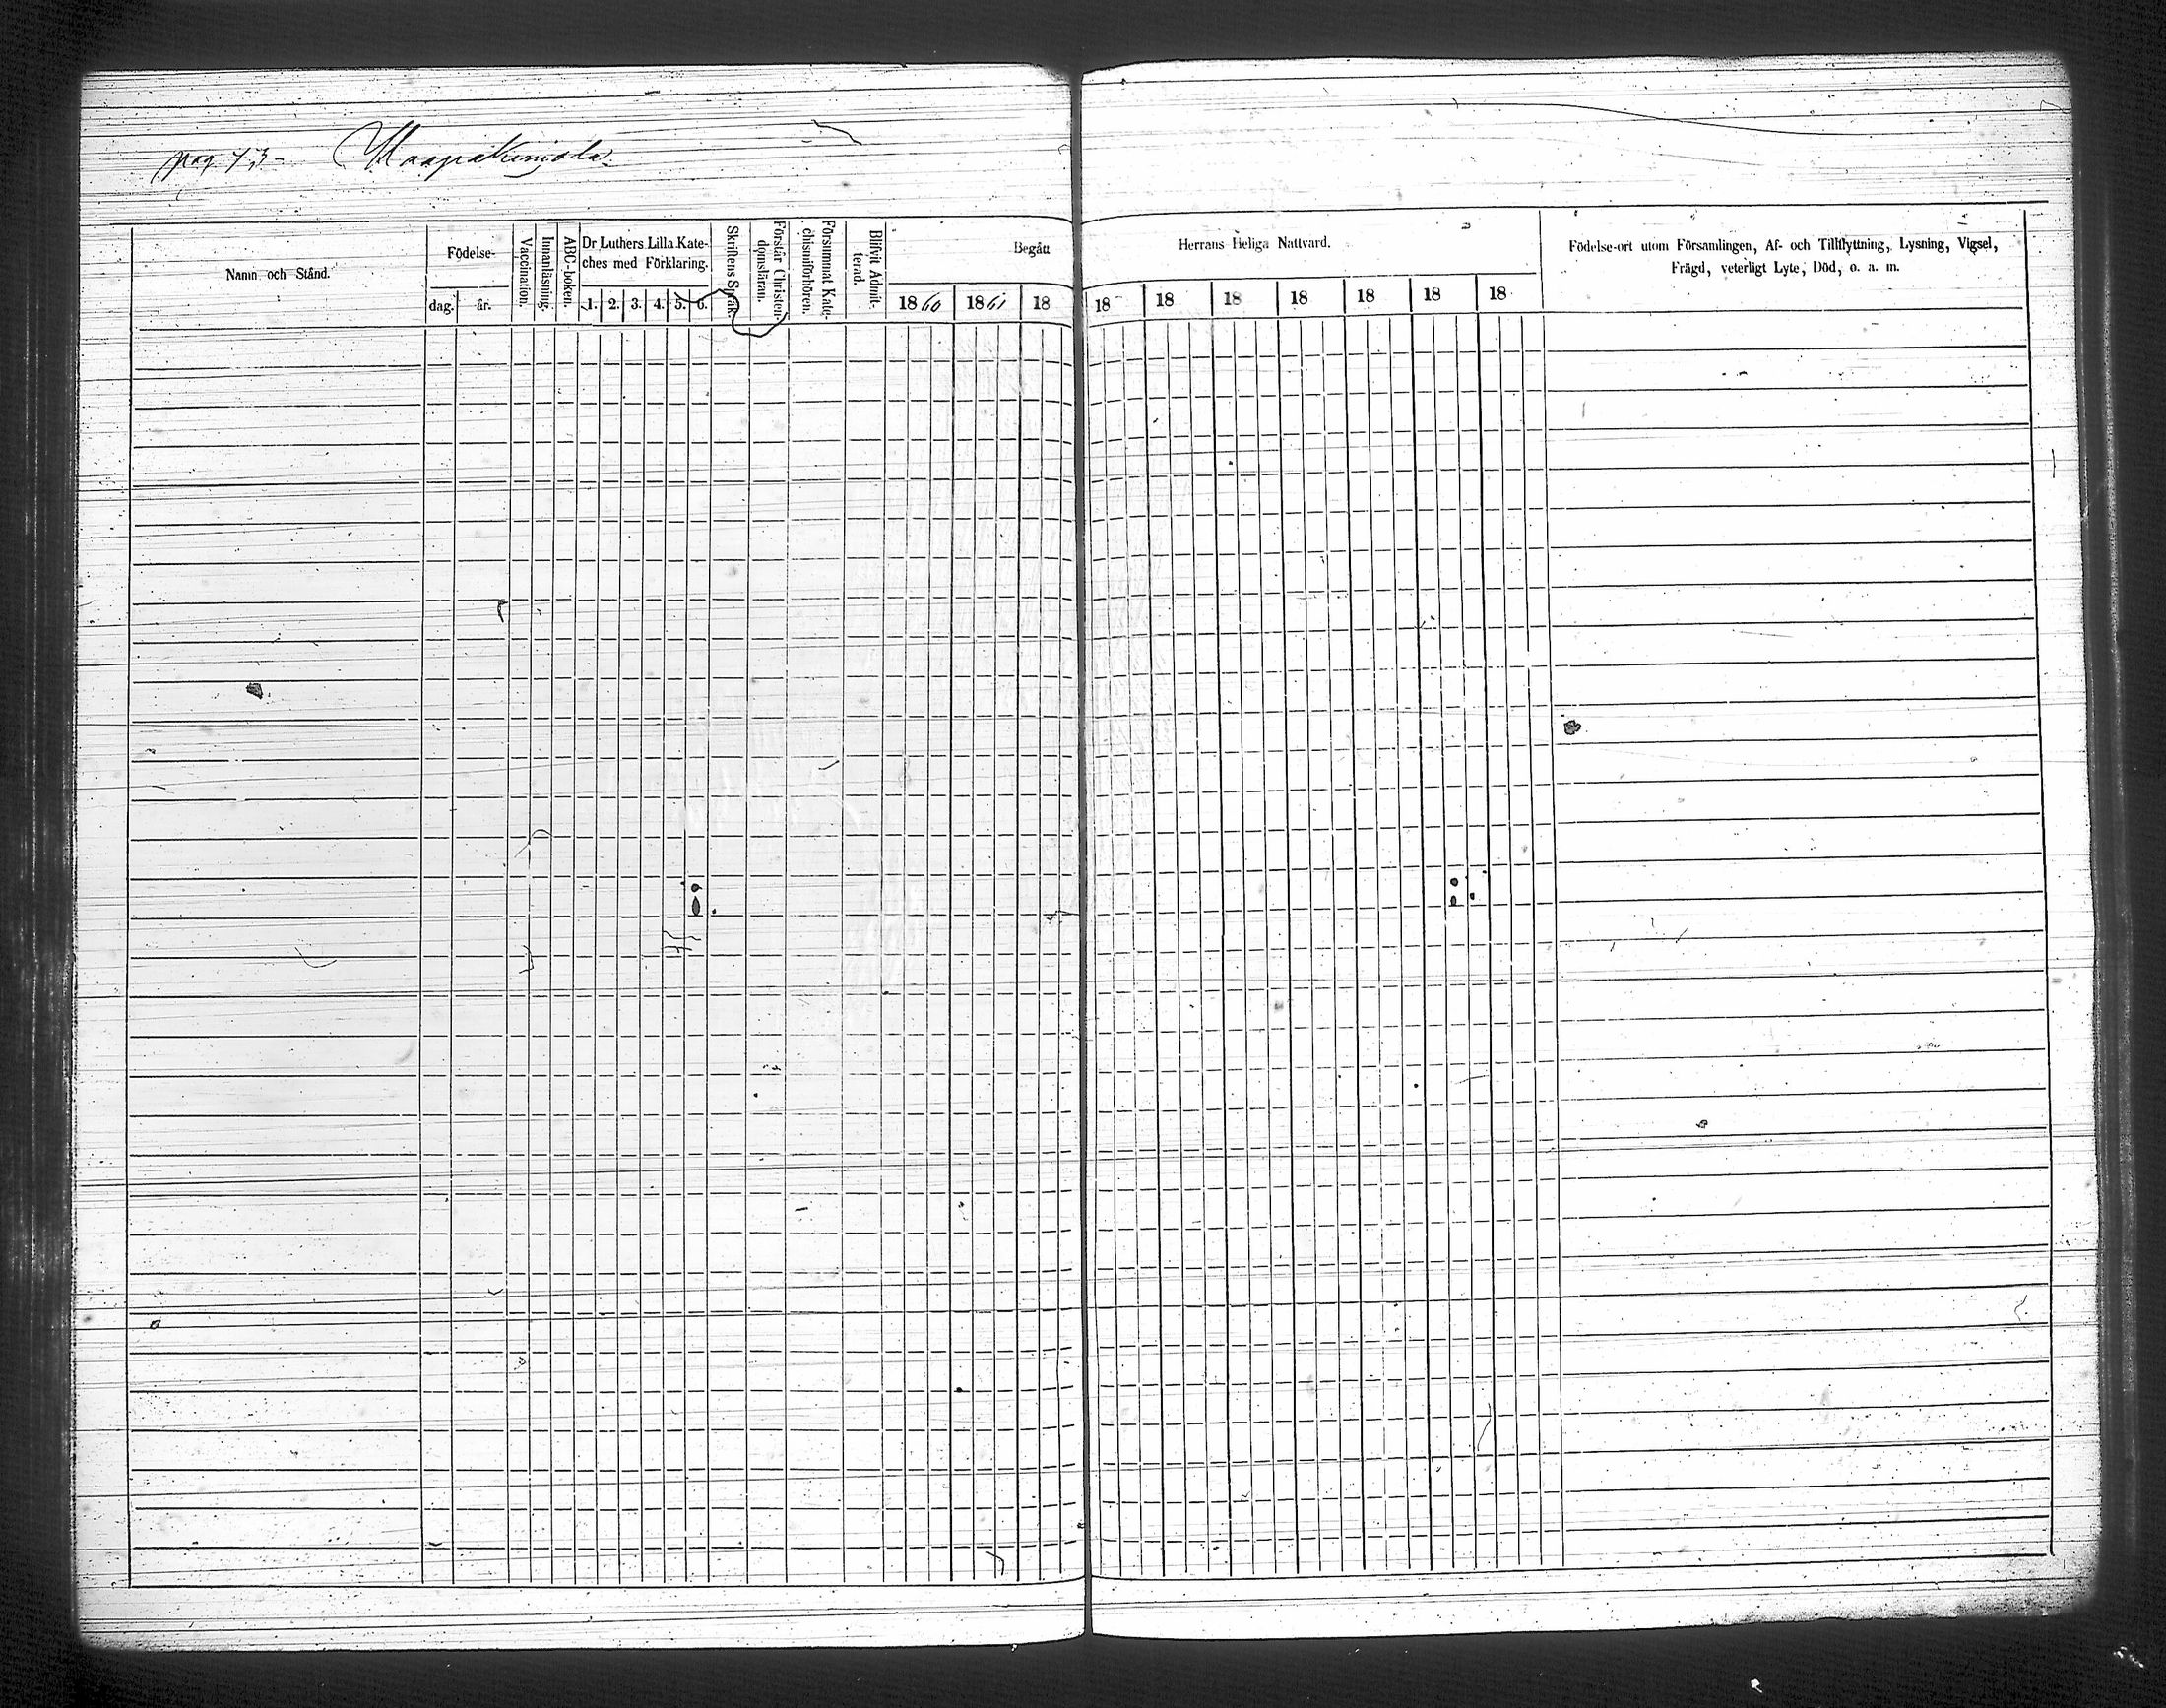 pag. 73
Namn och Stånd.
Födelse-
dag.
år.
Vaccination.
Innanläsning.
ABC-boken.
Dr Luthers Lilla Kate-
ches med Förklaring.
1. 2. 3. 4. 5. 6.
Skriftens Språk.
Förstår Christen-
domsläran.
Försummat Kate-
chismiförhören.
Blifvit Admit-
terad.
Begått
Herrans Heliga Nattvard.
1860 1861 18 18 18 18 18 18 18 18
Födelse-ort utom Församlingen, Af- och Tillflyttning, Lysning, Vigsel,
Frägd, veterligt Lyte, Död, o. a. m.